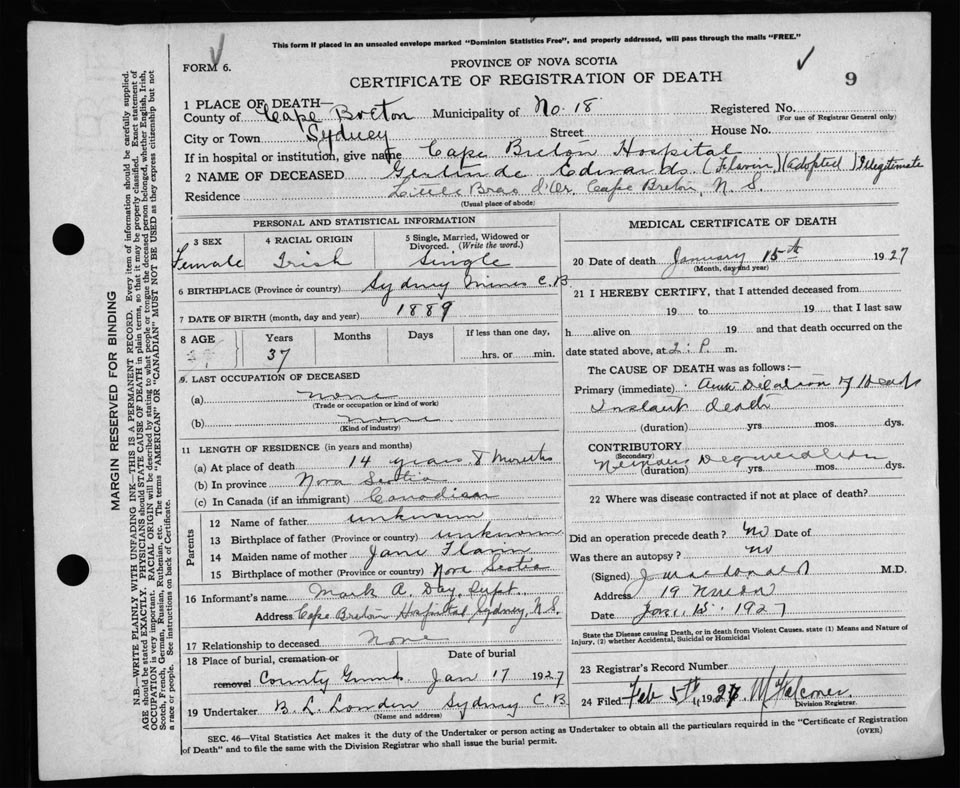 This form if placed in an unsealed envelope marked "Dominion Statistics Free", and properly addressed, will pass through the mails "FREE."
FORM 6.
PROVINCE OF NOVA SCOTIA
CERTIFICATE OF REGISTRATION OF DEATH
9
1 PLACE OF DEATH—
County of Cape Breton Municipality of No. 18 Registered No.
(For use of Registrar General only)
City or Town Sydney Street House No.
If in hospital or institution, give name Cape Breton Hospital
2 NAME OF DECEASED Edwards (Flavin) (adopted) Illegitimate
Residence Little Bras d'Or, Cape Breton, N. S.
(Usual place of abode)
PERSONAL AND STATISTICAL INFORMATION
3 SEX 4 RACIAL ORIGIN 5 Single, Married, Widowed or Divorced. (Write the word.)
Female Irish Single
6 BIRTHPLACE (Province or country) Sydney Mines C.B.
7 DATE OF BIRTH (month, day and year) 1889
8 AGE Years Months Days If less than one day,
37 hrs. or min.
9. LAST OCCUPATION OF DECEASED
(a) none
(Trade or occupation or kind of work)
(b) none
(Kind of industry)
11 LENGTH OF RESIDENCE (in years and months)
(a) At place of death 14 years 8 months
(b) In province Nova Scotia
(c) In Canada (if an immigrant) Canadian
Parents
12 Name of father unknown
13 Birthplace of father (Province or country) unknown
14 Maiden name of mother Jane Flavin
15 Birthplace of mother (Province or country) Nova Scotia
16 Informant's name Mark A. Day, Supt.
Address Cape Breton Hospital Sydney, N.S.
17 Relationship to deceased None
18 Place of burial, cremation or Date of burial
removal County Jan 17 1927
19 Undertaker B. L. Sydney C B
(Name and address)
MEDICAL CERTIFICATE OF DEATH
20 Date of death January 15th 1927
(Month, day and year)
21 I HEREBY CERTIFY, that I attended deceased from
19 to 19 that I last saw
h alive on 19 and that death occurred on the
date stated above, at 2: P. m.
The CAUSE OF DEATH was as follows:—
Primary (immediate) Dilation of Heart
Instant death
(duration) yrs. mos. dys.
CONTRIBUTORY
(Secondary) Degeneration
(duration) yrs. mos. dys.
22 Where was disease contracted if not at place of death?
Did an operation precede death? no Date of
Was there an autopsy? no
(Signed) J Macdonald M.D.
Address 19
Date Jan. 15. 1927
State the Disease causing Death, or in death from Violent Causes. state (1) Means and Nature of
Injury, (2) whether Accidental, Suicidal or Homicidal
23 Registrar's Record Number
24 Filed Feb 5th, 1927 M Falconer
Division Registrar.
SEC. 46—Vital Statistics Act makes it the duty of the Undertaker or person acting as Undertaker to obtain all the particulars required in the "Certificate of Registration
of Death" and to file the same with the Division Registrar who shall issue the burial permit.
(OVER)
MARGIN RESERVED FOR BINDING
N.B.—WRITE PLAINLY WITH UNFADING INK—THIS IS A PERMANENT RECORD. Every item of information should be carefully supplied.
AGE should be stated EXACTLY. PHYSICIANS should STATE CAUSE OF DEATH in plain terms, so that it may be properly classified. Exact statement of
OCCUPATION is very important. RACIAL ORIGIN will be described by stating to what people or tongue the deceased person belonged, whether English, Irish,
Scotch, French, German, Russian, Ruthenian, etc. The terms "AMERICAN" OR "CANADIAN" MUST NOT BE USED as they express citizenship but not
a race or people. See instructions on back of Certificate.